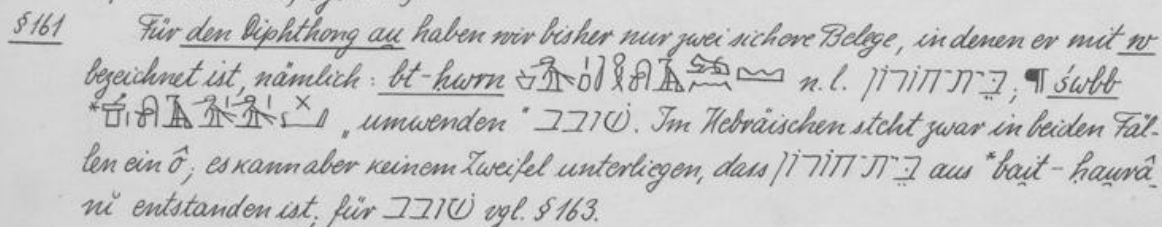 §161 Für den Diphthong au haben wir bisher nur zwei sichere Belege, in denen er mit w
bezeichnet ist, nämlich: bt-ḥwrn n.l. בֵּית־חוֹרוֹן; ¶ św̓bb
„umwenden“ שׁוֹבב. Im Hebräischen steht zwar in beiden Fäl-
len ein ô; es kann aber keinem Zweifel unterliegen, dass בֵּית־חוֹרוֹן aus *bait-ḥaurâ-
nĭ entstanden ist; für שׁוֹבב vgl. §163.